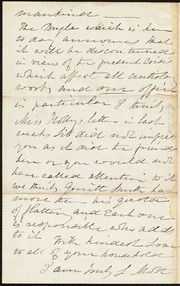 mankind —
The Bugle which is here
to day, announces that
it will be discontinued
in view of the present Crisis
which affect all antislavery
work and our office
in particular I think
Miss letter in last
weeks Std did not impress
you as it did the friends
here or you would not
have called attention to it
we think Gerritt Smith has
more than his quota
of flattery and each one
is responsible who adds
to it With kindest love
to all of your household
I am truly L Mott